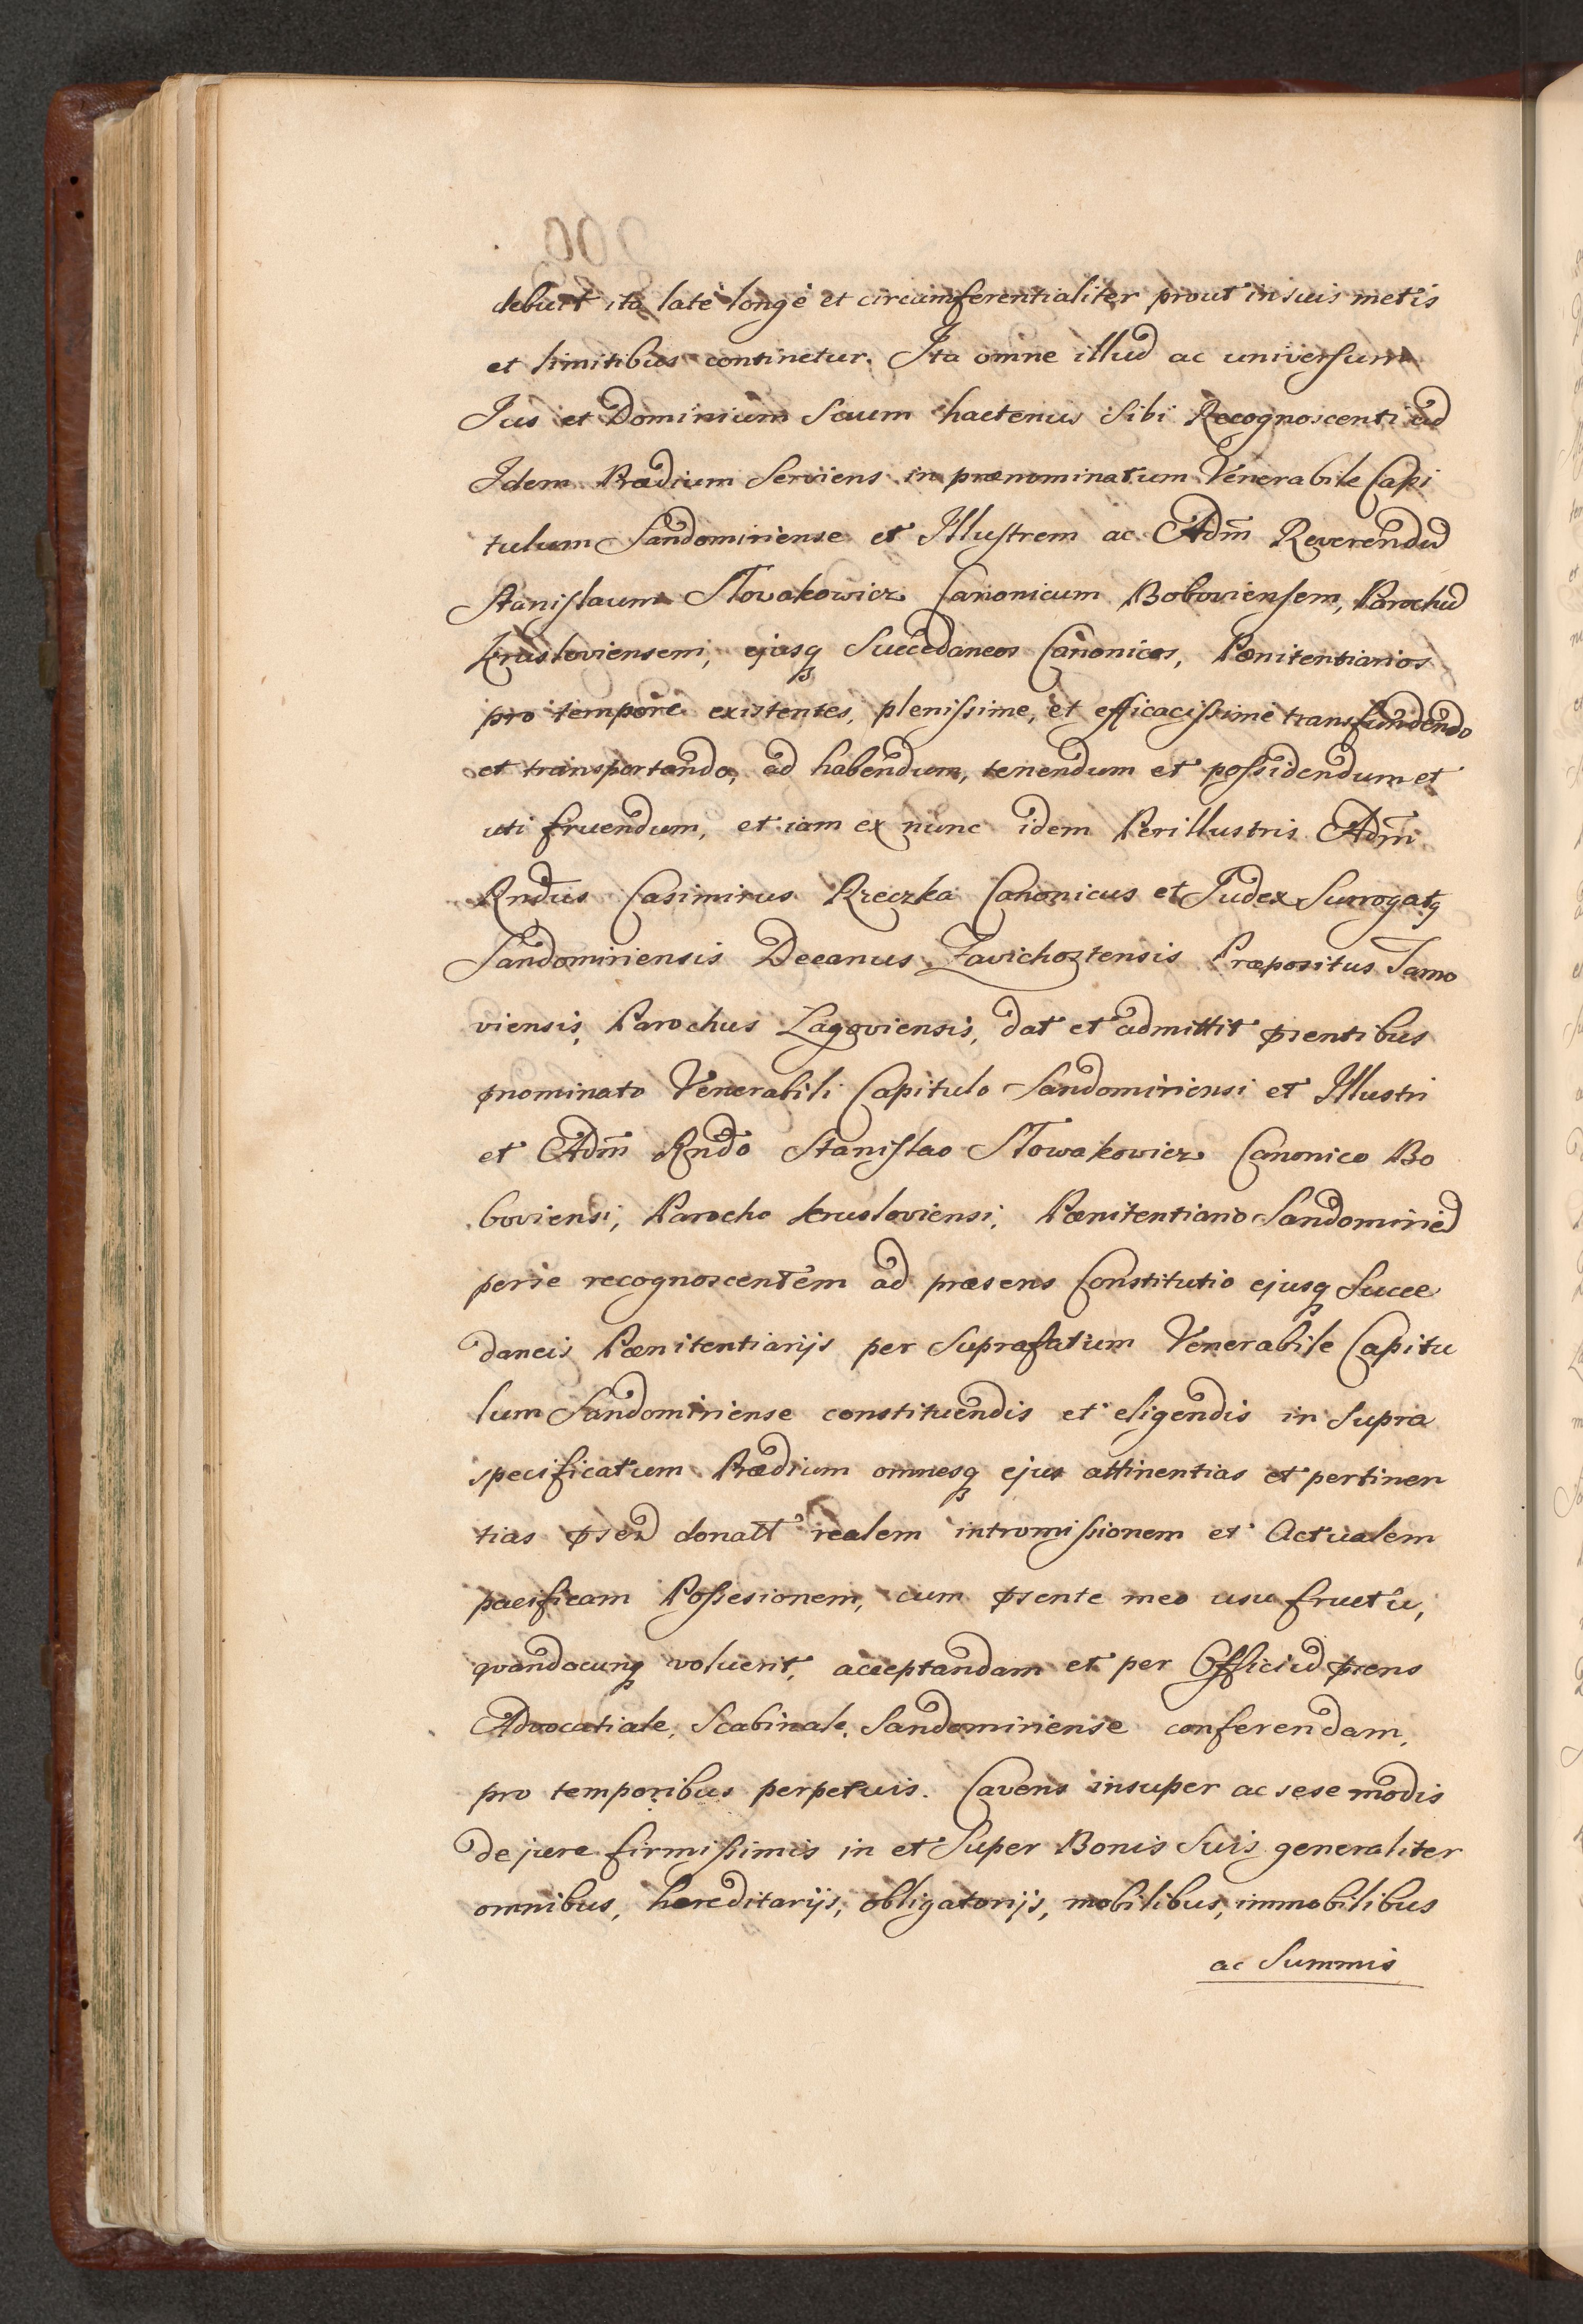 debunt ita late longe et circumferentialiter prout in suis metis
et limitibus continetur. Ita omne illud ac universum
Jus et Dominium Suum hactenus Sibi Recognoscenti ad
Idem Prædium Serviens in prænominatum Venerabile Capi
tulum Sandomiriense et Illustrem ac Adm̃ Reverendũ
Stanislaum Słowakowicz Canonicum Boboviensem, Parochũ
Krusloviensem, ejusq Succedaneos Canonicos, Pænitentiarios
pro tempore existentes, plenissime, et efficacissime transfundendo
et transportando, ad habendum, tenendum et possidendum et
uti fruendum, et iam ex nunc idem Perillustris Adm̃
Rndus Casimirus Rzeczka Canonicus et Judex Surrogatq
Sandomiriensis Decanus Zavichostensis Præpositus Tarno
viensis, Parochus Lagoviensis, dat et admittit pñentibus
pnominato Venerabili Capitulo Sandomiriensi et Illustri
et Adm̃ Rndo Stanislao Słowakowicz Canonico Bo
boviensi, Parocho Krusloviensi, Pænitentiario Sandomirieñ
per se recognoscentem ad præsens Constitutio ejusq Succe
daneis Pænitentiarijs per Suprafatum Venerabile Capitu
lum Sandomiriense constituendis et eligendis in Supra
specificatum Prædium omnesq ejus attinentias et pertinen
tias donatt realem intromissionem et Actualem
pacificam Possesionem, cum psente meo usu fructu,
quandocunq voluerit, acceptandam et per Officiũ prens
Advocatiale, Scabinale, Sandomiriense conferendam,
pro temporibus perpetuis. Cavens insuper ac sese modis
de jure firmissimis in et Super Bonis Suis generaliter
omnibus, hæreditarijs, obligatorijs, mobilibus, immobilibus
ac Summis